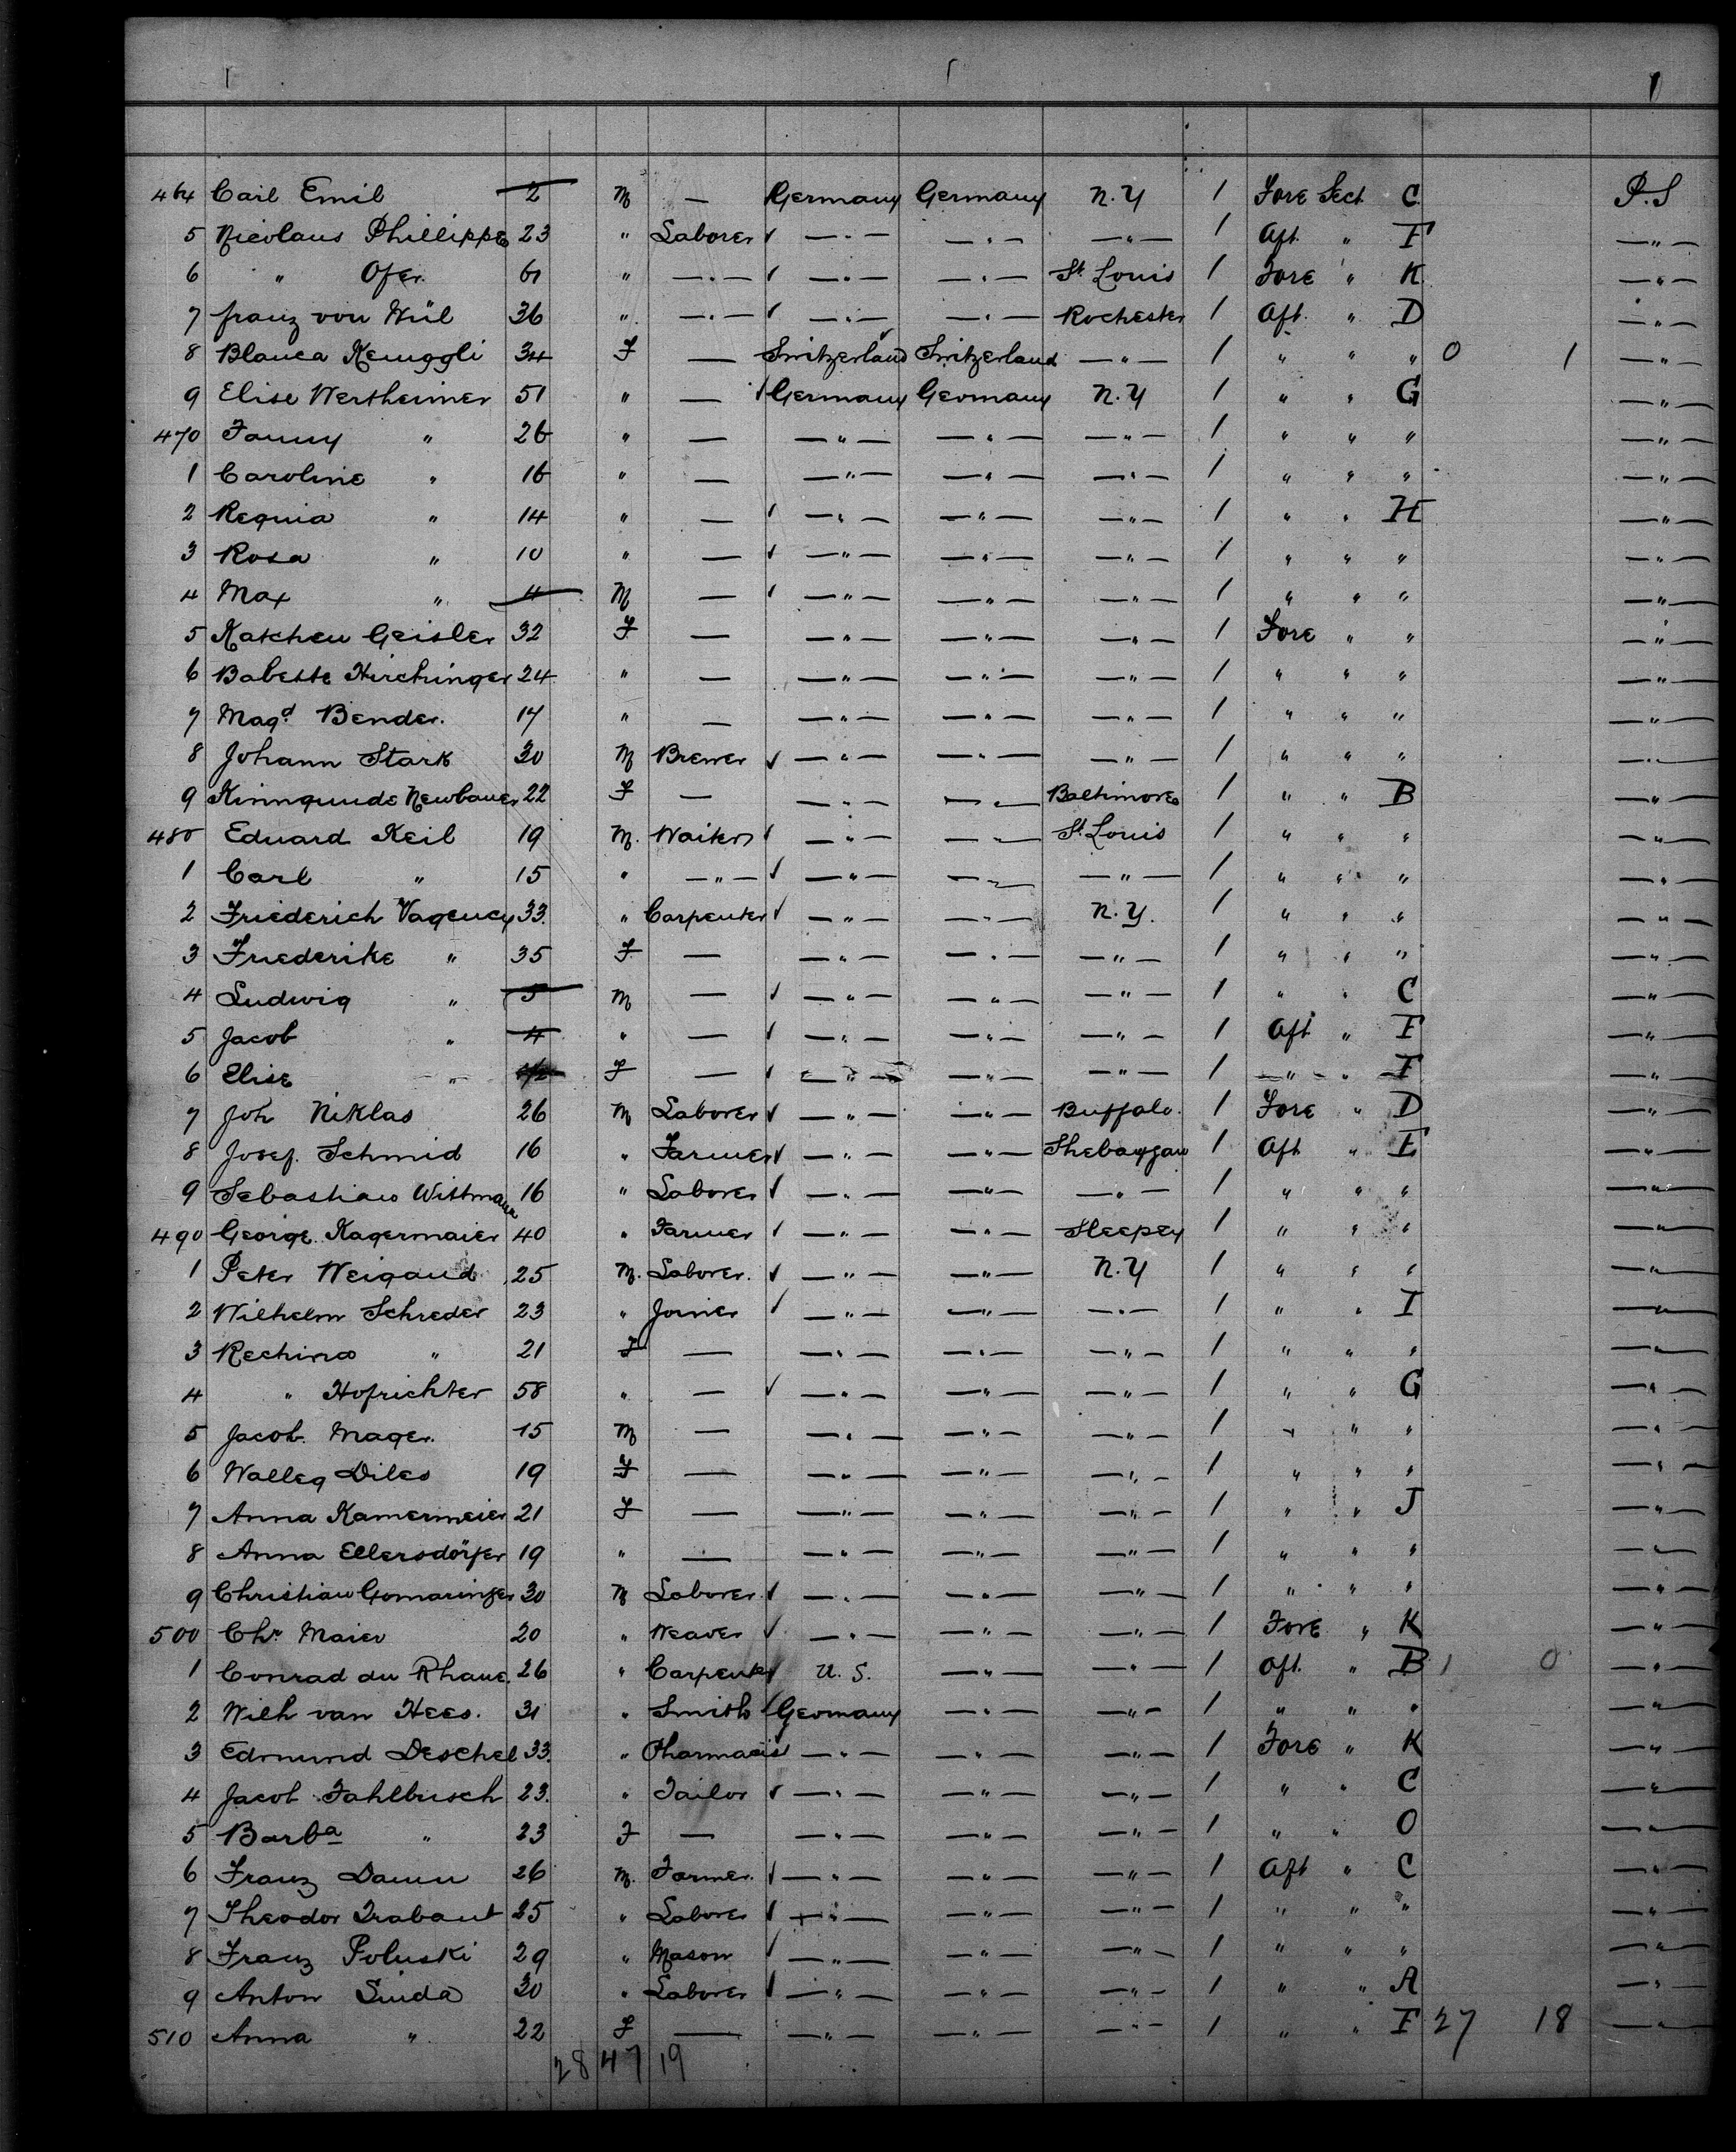 464 Carl Emil 2 M — Germany Germany N.Y 1 Fore Sect C. P.S
5 Nicolaus Phillippe 23 " Laborer —"— —"— —"— 1 Aft " F —"—
6 " Ofer. 61 " —"— —"— —"— St. Louis 1 Fore " K —"—
7 franz von Wiil 36 " —"— —"— —"— Rochester 1 Aft " D —"—
8 Blanca Kenggli 34 F — Switzerland Switzerland —"— 1 " " " 0 1 —"—
9 Elise Wertheimer 51 " — Germany Germany N.Y 1 " " G —"—
470 Fanny " 26 " — —"— —"— —"— 1 " " " —"—
1 Caroline " 16 " — —"— —"— —"— 1 " " " —"—
2 Regina " 14 " — —"— —"— —"— 1 " " H —"—
3 Rosa " 10 " — —"— —"— —"— 1 " " " —"—
4 Max " 4 M — —"— —"— —"— 1 " " " —"—
5 Katchen Geisler 32 F — —"— —"— —"— 1 Fore " " —"—
6 Babette Hirchinger 24 " — —"— —"— —"— 1 " " " —"—
7 Magd. Bender. 17 " — —"— —"— —"— 1 " " " —"—
8 Johann Stark 30 M Brewer —"— —"— —"— 1 " " " —"—
9 Kinngunde Newbauer 22 F — —"— —"— Baltimore 1 " " B —"—
480 Eduard Keil 19 M. Waiter —"— —"— St. Louis 1 " " " —"—
1 Carl " 15 " —"— —"— —"— —"— 1 " " " —"—
2 Friederich Vagency 33. " Carpenter —"— —"— N.Y. 1 " " " —"—
3 Friederike " 35 F — —"— —"— —"— 1 " " " —"—
4 Ludwig " 5 M — —"— —"— —"— 1 " " C —"—
5 Jacob " 4 " — —"— —"— —"— 1 Aft " F —"—
6 Elise " F — —"— —"— —"— 1 —"— " F —"—
7 Joh Niklas 26 M Laborer —"— —"— Buffalo. 1 Fore " D —"—
8 Josef. Schmid 16 " Farmer —"— —"— Shebaygan 1 Aft " E —"—
9 Sebastian Wittmann 16 " Laborer —"— —"— —"— 1 " " " —"—
490 George Kagermaier 40 " Farmer —"— —"— Sleepey 1 " " " —"—
1 Peter Weigand 25 M. Laborer. —"— —"— N.Y 1 " " " —"—
2 Wilhelm Schreder 23 " Joiner —"— —"— —"— 1 " " I —"—
3 Rechina " 21 F — —"— —"— —"— 1 " " " —"—
4 " Hofrichter 58 " — —"— —"— —"— 1 " " G —"—
5 Jacob. Mager. 15 M — —"— —"— —"— 1 " " " —"—
6 Walleg Diles 19 F — —"— —"— —"— 1 " " " —"—
7 Anna Kamermeier 21 F — —"— —"— —"— 1 " " J —"—
8 Anna Ellersdörfer 19 " — —"— —"— —"— 1 " " " —"—
9 Christian Gomaringer 30 M Laborer —"— —"— —"— 1 " " " —"—
500 Chr. Maier 20 " Weaver —"— —"— —"— 1 Fore " K —"—
1 Conrad du Rhaue. 26 " Carpenter U.S. —"— —"— 1 Aft. " B 1 0 —"—
2 Wilh van Hees. 31 " Smith Germany —"— —"— 1 " " " —"—
3 Edmund Deschel 33. " Pharmacist —"— —"— —"— 1 Fore " K —"—
4 Jacob Fahlbusch 23. " Tailor —"— —"— —"— 1 " " C —"—
5 Barba " 23 F — —"— —"— —"— 1 " " O —"—
6 Franz Damm 26 M. Farmer. —"— —"— —"— 1 Aft " C —"—
7 Theodor Trabant 25 " Laborer —"— —"— —"— 1 " " " —"—
8 Franz Poluski 29 " Mason —"— —"— —"— 1 " " " —"—
9 Anton Suida 30 " Laborer —"— —"— —"— 1 " " A —"—
510 Anna " 22 F — —"— —"— —"— 1 " " F 27 18 —"—
28 47 19